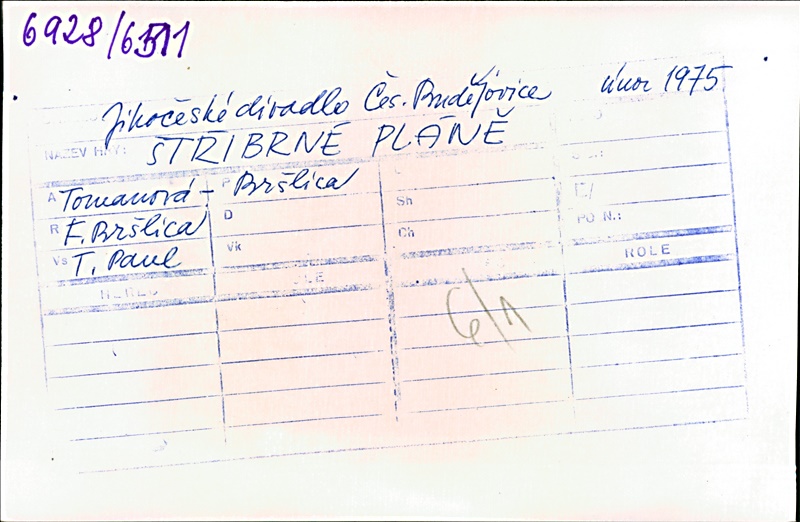 6928/6511
Jihočeské divadlo Čes. Budějovice únor 1975
NÁZEV HRY: STŘÍBRNÉ PLÁNĚ
A Tomanová - Bršlica
R E. Bršlica D Sh
Vs T. Paul Vk Ch PO N.:
ROLE
6/1